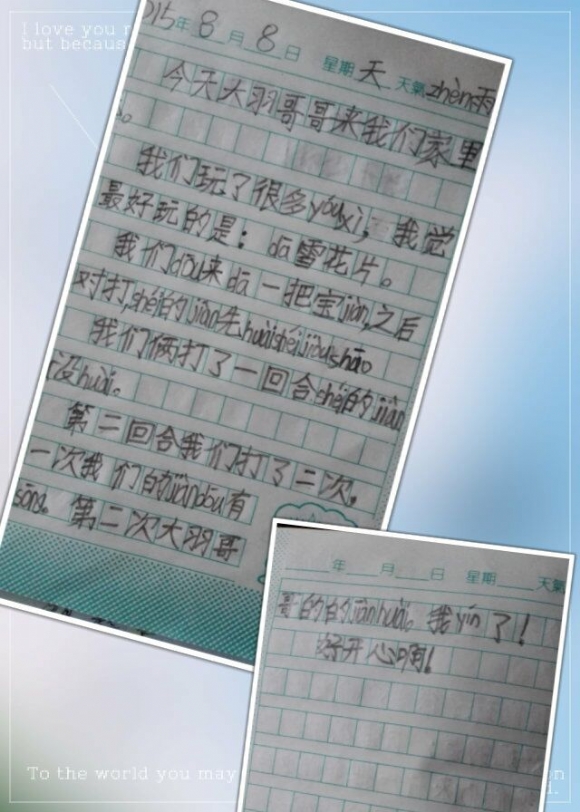 I love you n
but becaus
015年8月8日 星期天 天氣zhèn雨
今天大羽哥哥来我们家里
。
我们玩了很多yóuxì，我觉
最好玩的是：dā雪花片。
我们dōu来dā一把宝jiàn，之后
对打，shéi的jiàn先huàishéijiùshū
我们俩打了一回合shéi的jiàn
没huài。
第二回合我们打了二次，
一次我们的jiàndōu有
sōng。第二次大羽哥
年 月 日 星期 天氣
哥的的jiànhuài。我yín了！
好开心啊！
To the world you may
on
d.